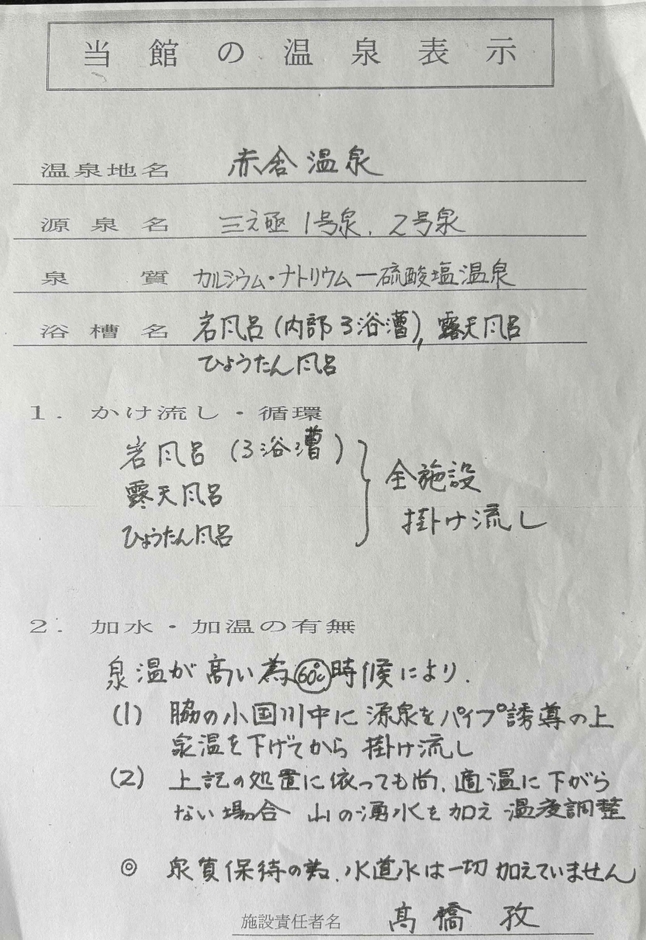 当館の温泉表示
温泉地名 赤倉温泉
源泉名 三之亟 1号泉、2号泉
泉質 カルシウム・ナトリウムー硫酸塩温泉
浴槽名 岩風呂(内部3浴漕), 露天風呂
ひょうたん風呂
1. かけ流し・循環
岩風呂(3浴漕)
露天風呂
ひょうたん風呂
全施設
掛け流し
2. 加水・加温の有無
泉温が高い為60℃時候により、
(1) 脇の小国川中に源泉をパイプ誘導の上
泉温を下げてから掛け流し
(2) 上記の処置に依っても尚、適温に下がら
ない場合 山の湧水を加え温度調整
◎ 泉質保持の為、水道水は一切加えていません
施設責任者名 高橋孜